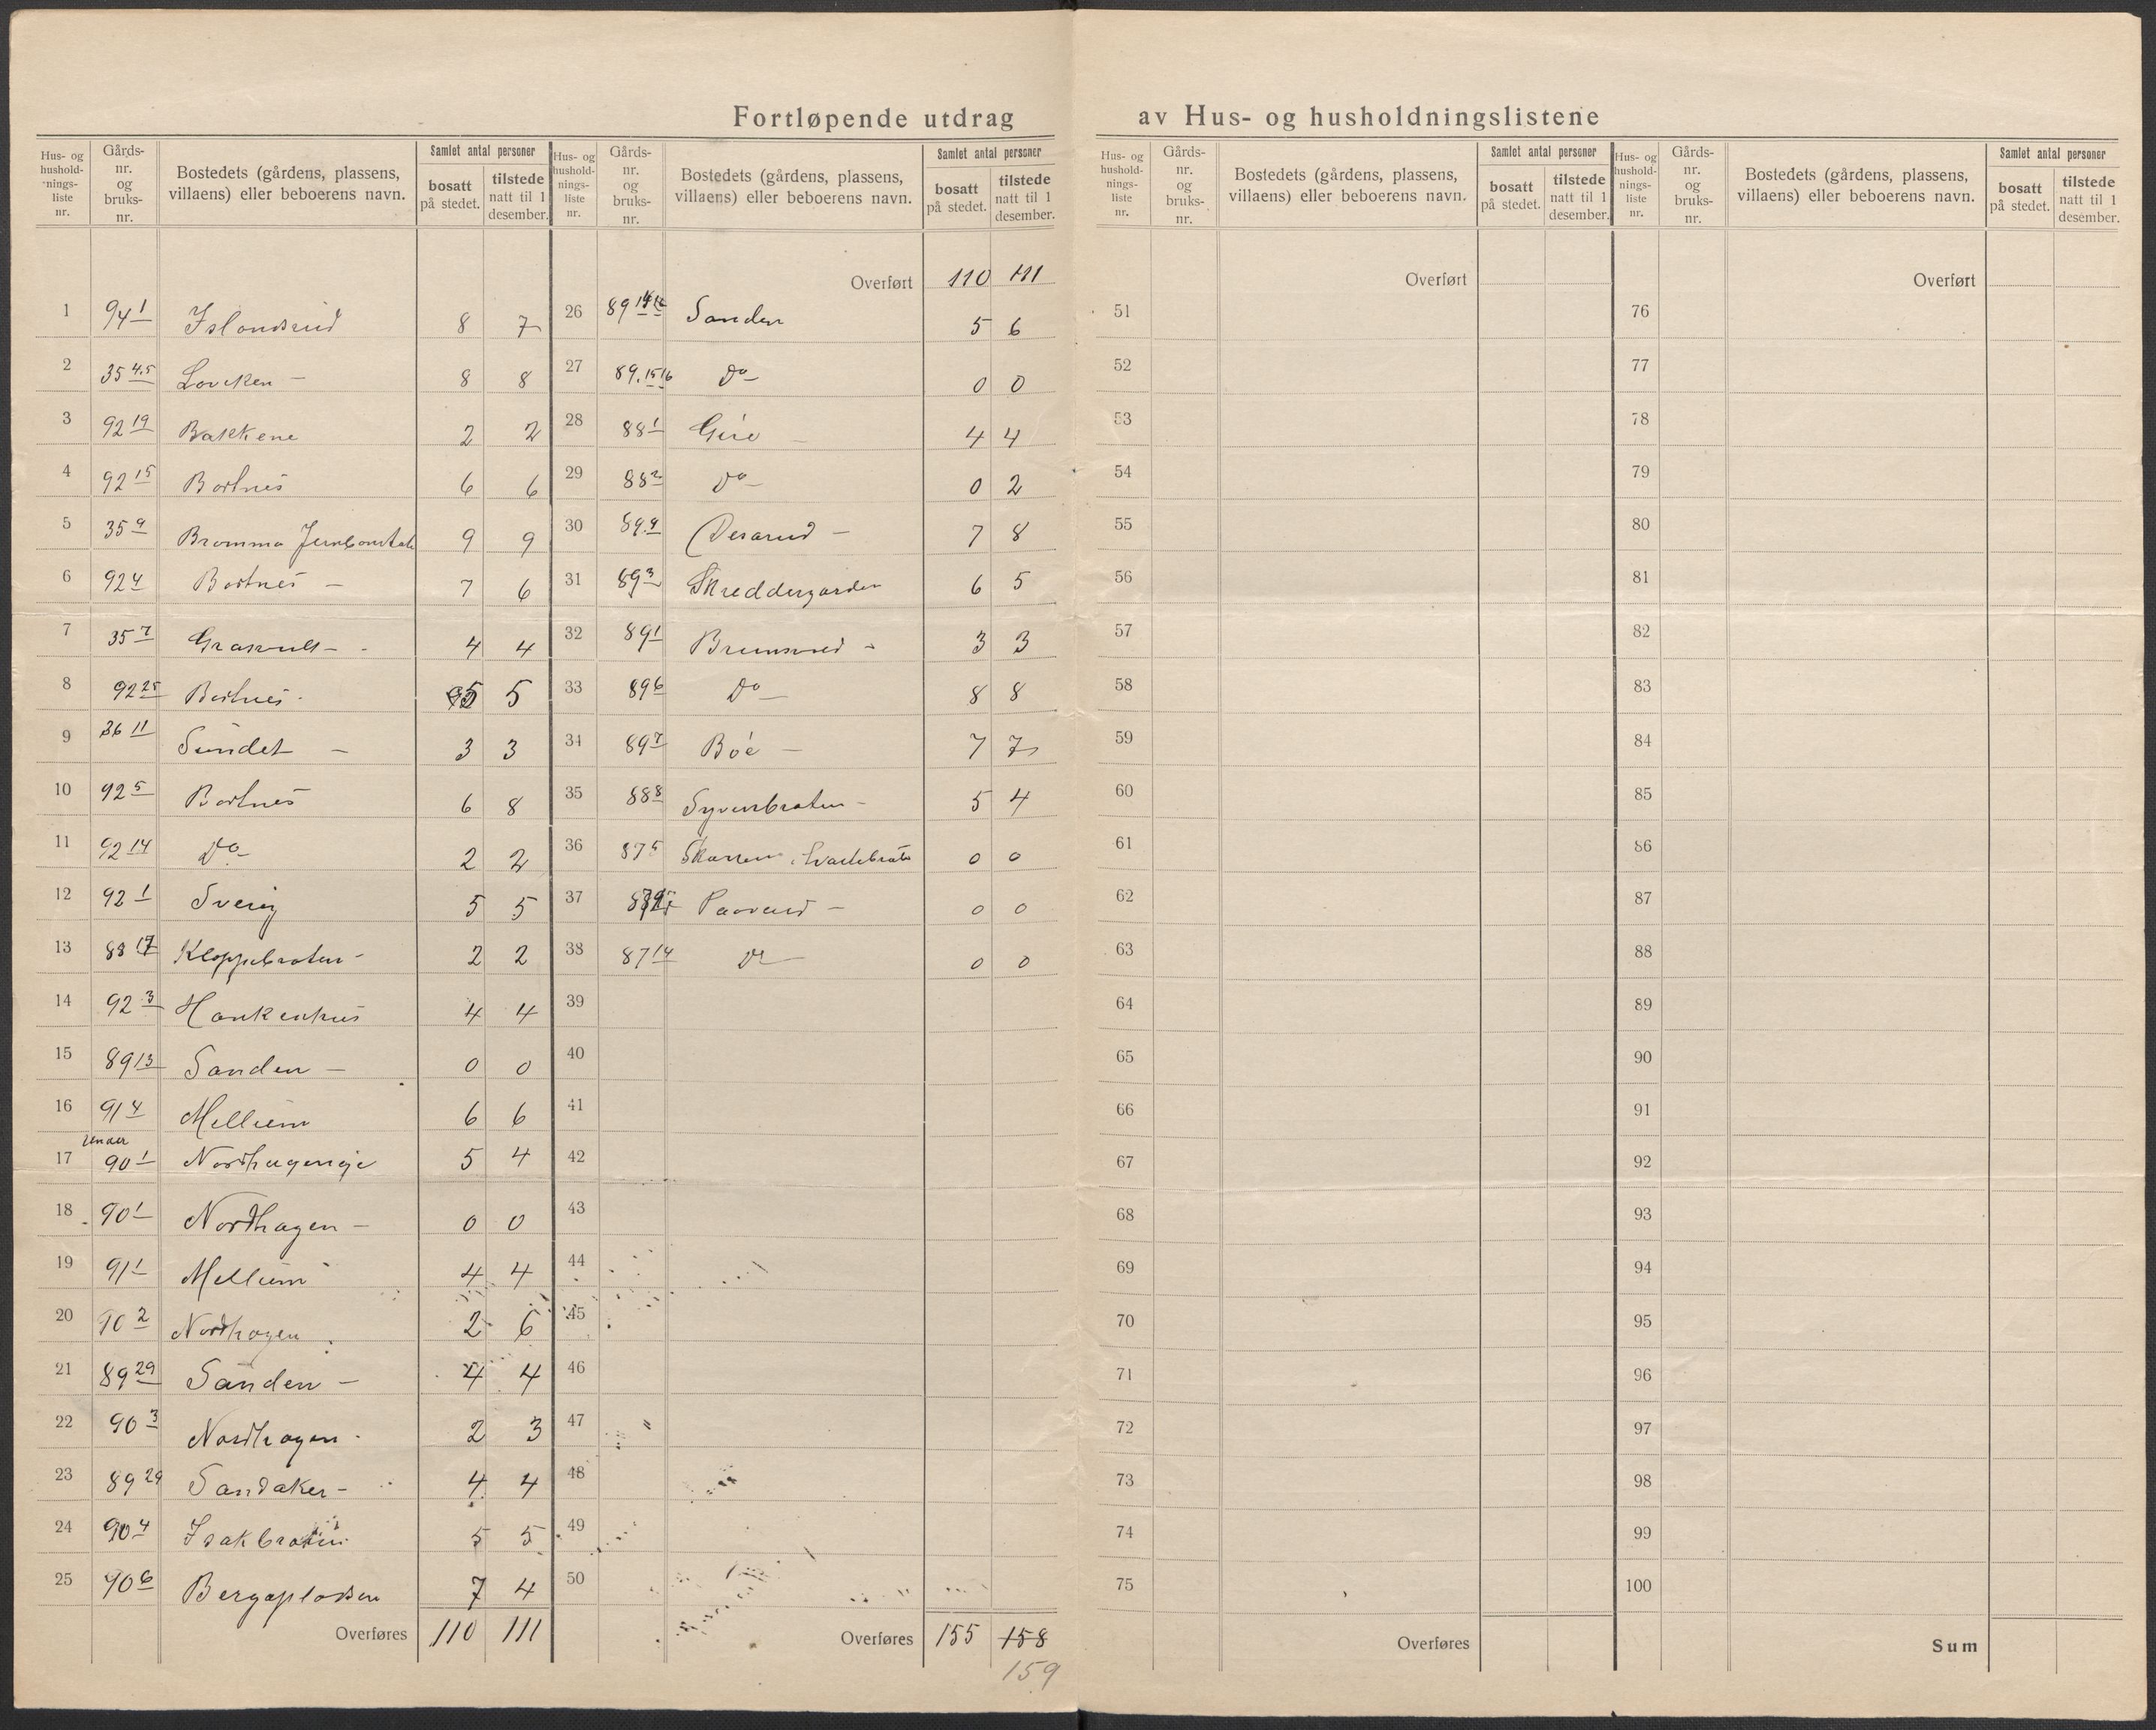 Fortløpende utdrag av Hus- og husholdningslistene
Hus- og hushold-nings-liste nr. | Gårds-nr. og bruks-nr. | Bostedets (gårdens, plassens, villaens) eller beboerens navn. | Samlet antal personer | bosatt på stedet. | tilstede natt til 1 desember.
1 94 1 Islandsrud 8 7
2 35 4.5 8 8
3 92 19 Bakkene 2 2
4 92 15 Bortnes 6 6
5 35 9 Bromma 9 9
6 92 4 Bortnes – 7 6
7 35 7 4 4
8 92 25 Bortnes - 5 5
9 36 11 Sundet – 3 3
10 92 5 Bortnes 6 8
11 92 14 Do – 2 2
12 92 1 Sverig 5 5
13 88 17 Kloppebraten – 2 2
14 92 3 Haukenhus 4 4
15 89 13 Sanden – 0 0
16 91 4 Mellum 6 6
under
17 90 1 Nordhageneje 5 4
18 90 1 Nordhagen – 0 0
19 91 1 Mellum 4 4
20 90 2 Nordhagen 2 6
21 89 29 Sanden – 4 4
22 90 3 Nordhagen - 2 3
23 89 29 Sandaker – 4 4
24 90 4 Isakbraten 5 5
25 90 6 Bergaplassen 7 4
Overføres 110 111
Hus- og hushold-nings-liste nr. | Gårds-nr. og bruks-nr. | Bostedets (gårdens, plassens, villaens) eller beboerens navn. | Samlet antal personer | bosatt på stedet. | tilstede natt til 1 desember.
Overført 110 111
26 89 Sanden 5 6
27 89.15 16 Do – 0 0
28 88 1 4 4
29 88 2 Do – 0 2
30 89.4 7 8
31 89 3 Skreddergarden 6 5
32 89 1 3 3
33 89 6 Do – 8 8
34 89 7 Böe – 7 7
35 88 8 Syverbraten – 5 4
36 87 5 0 0
37 Paverud – 0 0
38 87 14 Do 0 0
39
40
41
42
43
44
45
46
47
48
49
50
Overføres 155 158
159
Hus- og hushold-nings-liste nr. | Gårds-nr. og bruks-nr. | Bostedets (gårdens, plassens, villaens) eller beboerens navn. | Samlet antal personer | bosatt på stedet. | tilstede natt til 1 desember.
Overført
51
52
53
54
55
56
57
58
59
60
61
62
63
64
65
66
67
68
69
70
71
72
73
74
75
Overføres
Hus- og hushold-nings-liste nr. | Gårds-nr. og bruks-nr. | Bostedets (gårdens, plassens, villaens) eller beboerens navn. | Samlet antal personer | bosatt på stedet. | tilstede natt til 1 desember.
Overført
76
77
78
79
80
81
82
83
84
85
86
87
88
89
90
91
92
93
94
95
96
97
98
99
100
Sum